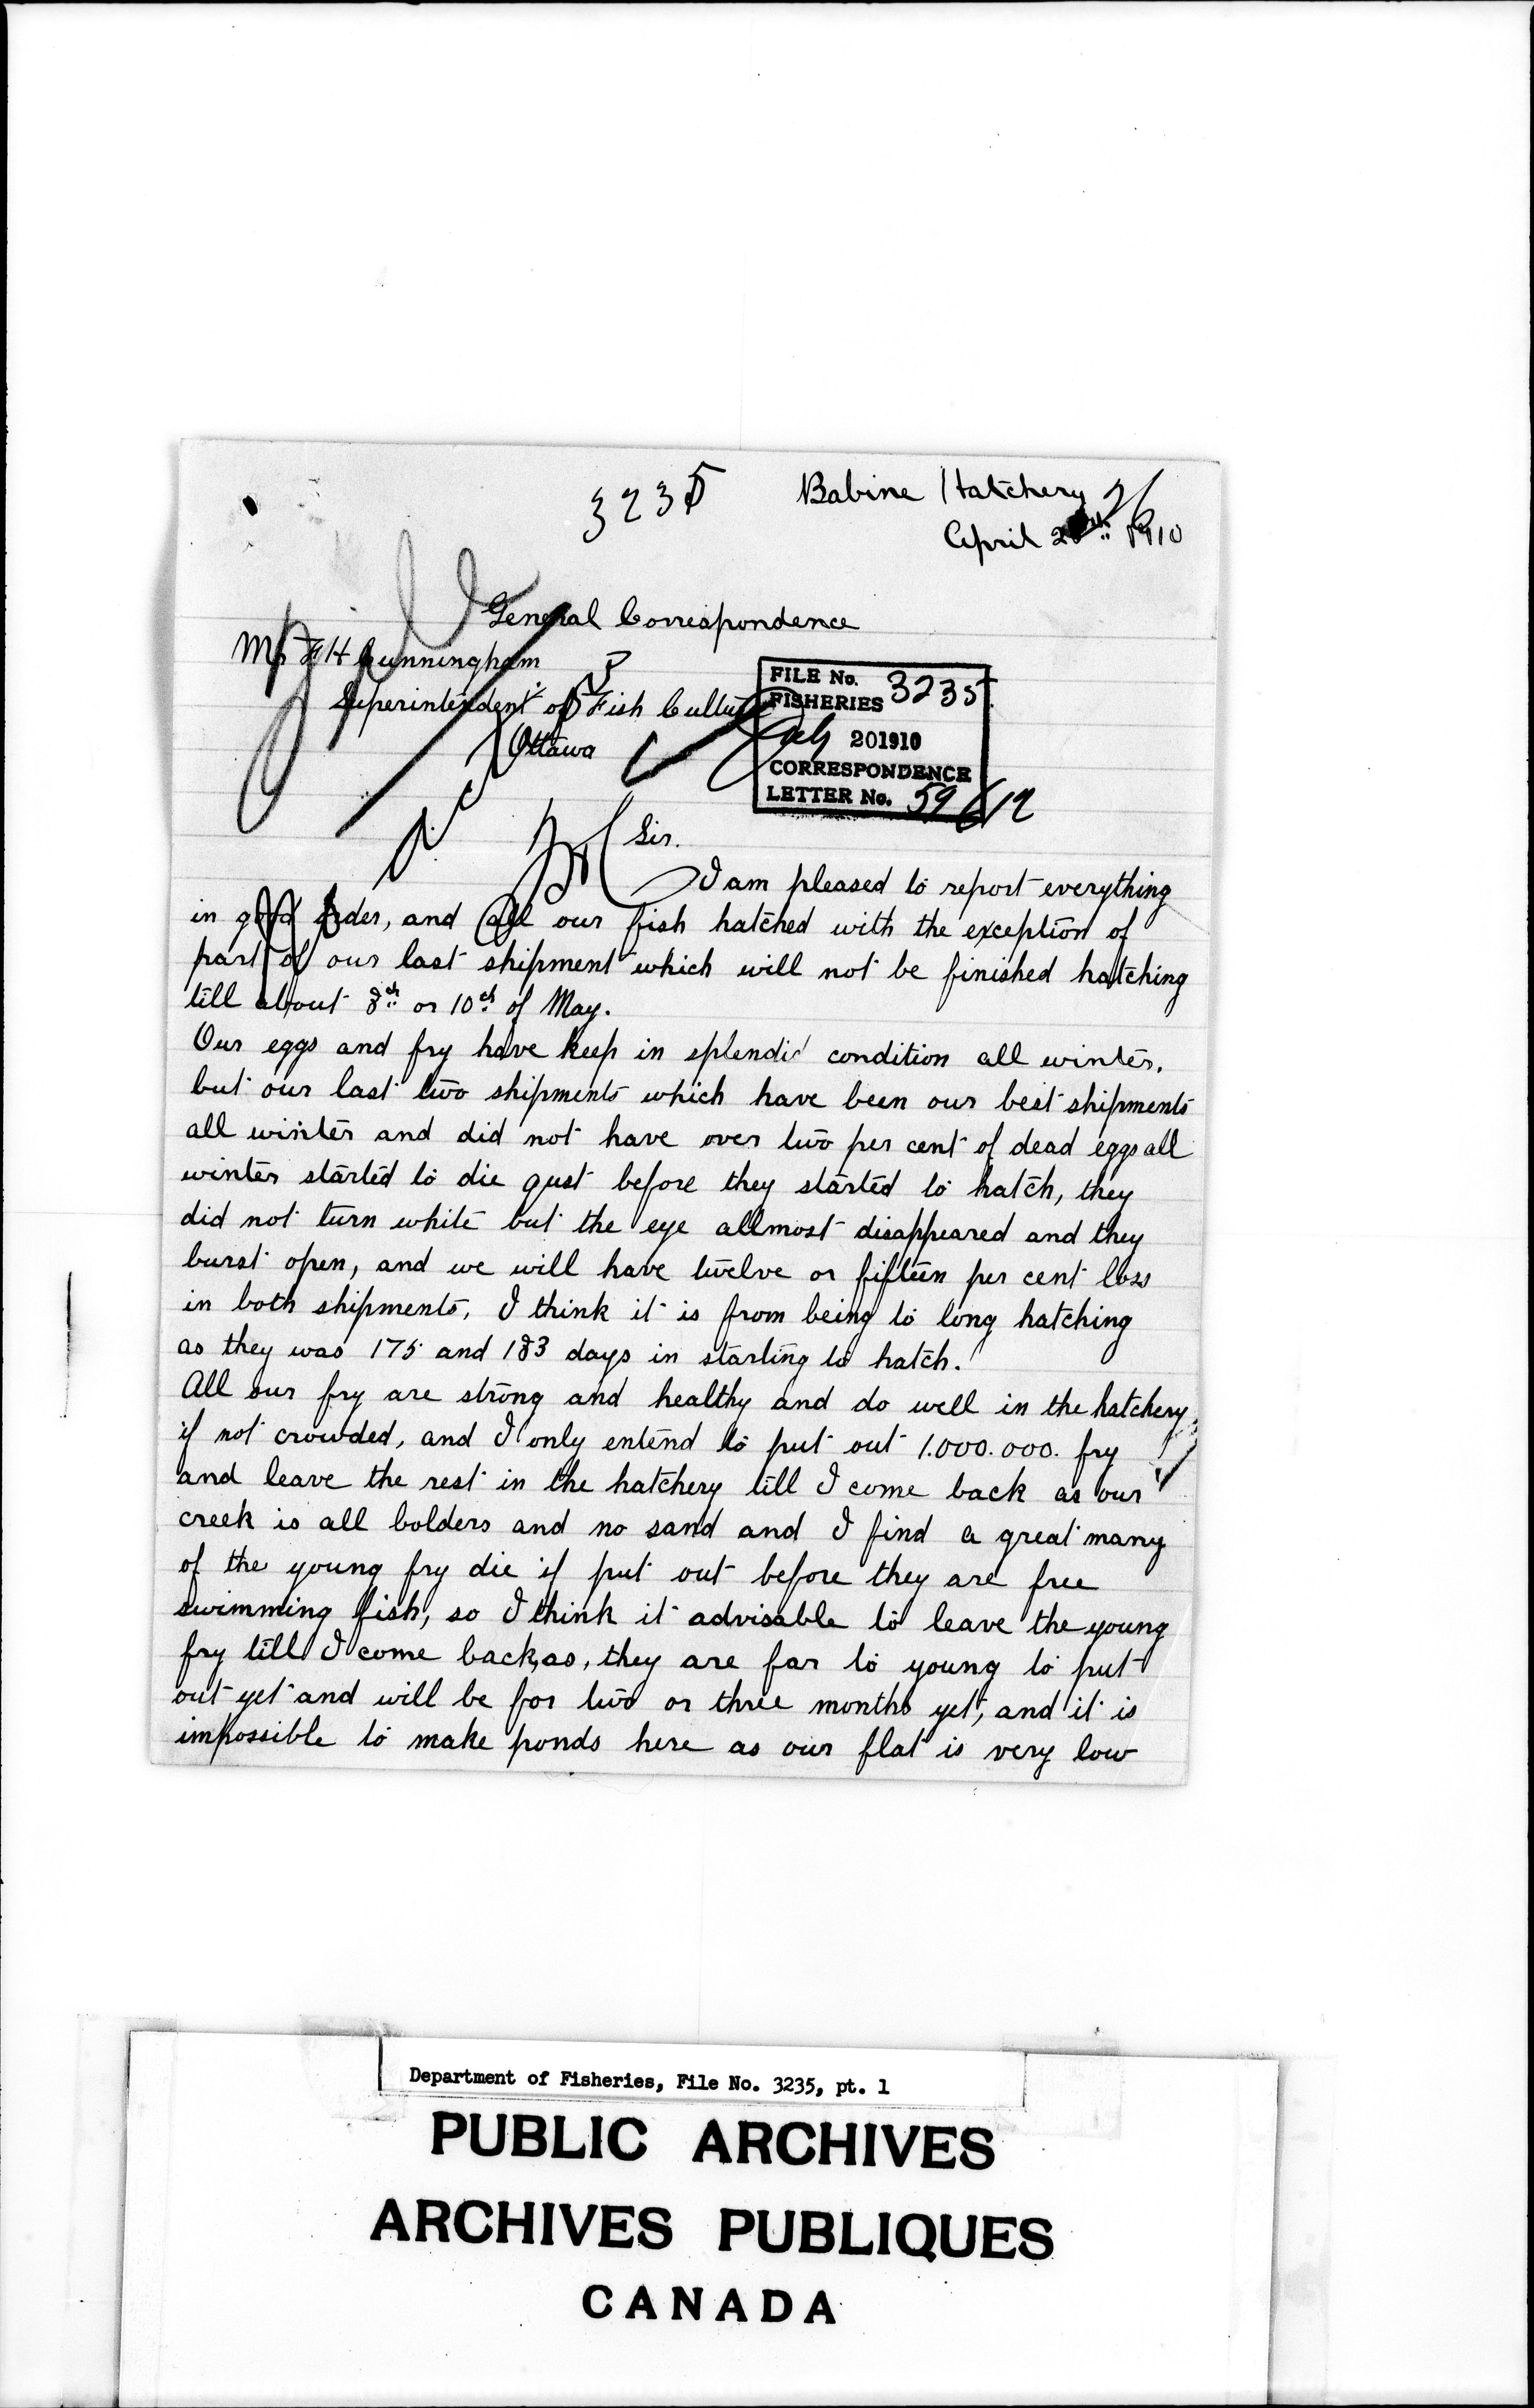 3235
Babine Hatchery
April 1910
General Correspondence
Mr F H Cunningham
Superintendent of Fish Culture
Ottawa
FILE No.
FISHERIES 3235
201910
CORRESPONDENCE
LETTER No. 59612
Sir.
I am pleased to report everything
in good order, and all our fish hatched with the exception of
part of our last shipment which will not be finished hatching
till about 8th or 10th of May.
Our eggs and fry have keep in splendid condition all winter.
but our last two shipments which have been our best shipments
all winter and did not have over two per cent of dead eggs all
winter started to die gust before they started to hatch, they
did not turn white but the eye allmost disappeared and they
burst open, and we will have twelve or fifteen per cent loss
in both shipments, I think it is from being to long hatching
as they was 175 and 183 days in starting to hatch.
All our fry are strong and healthy and do well in the hatchery
if not crowded, and I only entend to put out 1.000.000. fry
and leave the rest in the hatchery till I come back as our
creek is all bolders and no sand and I find a great many
of the young fry die if put out before they are free
swimming fish, so I think it advisable to leave the young
fry till I come back, as, they are far to young to put
out yet and will be for two or three months yet, and it is
impossible to make ponds here as our flat is very low
Department of Fisheries, File No. 3235, pt. 1
PUBLIC ARCHIVES
ARCHIVES PUBLIQUES
CANADA